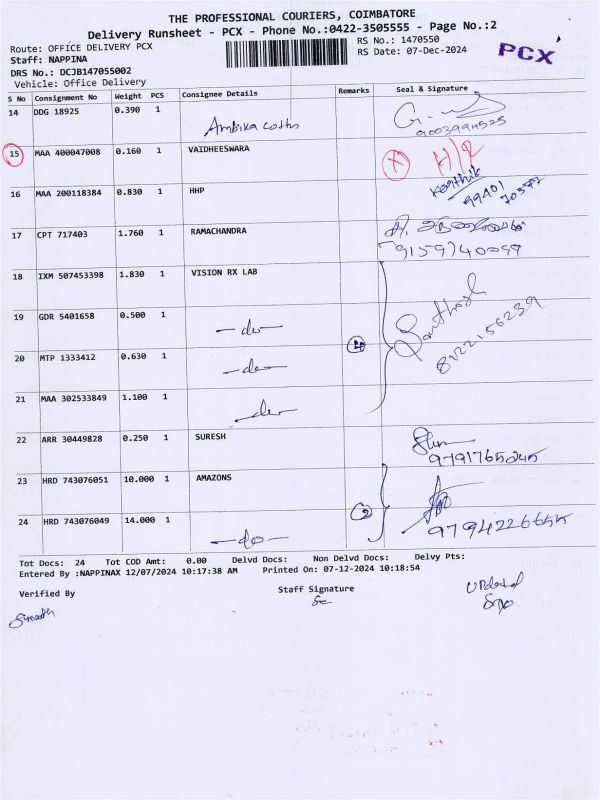 THE PROFESSIONAL COURIERS, COIMBATORE
Delivery Runsheet - PCX - Phone No.:0422-3505555 - Page No.:2
Route: OFFICE DELIVERY PCX
RS No.: 1470550
Staff: NAPPINA
RS Date: 07-Dec-2024
PCX
DRS No.: DCJB147055002
Vehicle: Office Delivery
S No Consignment No Weight PCS Consignee Details Remarks Seal & Signature
14 DDG 18925 0.390 1 Ambika
15 MAA 400047008 0.160 1 VAIDHEESWARA
16 MAA 200118384 0.830 1 HHP Karthik
99401
17 CPT 717403 1.760 1 RAMACHANDRA
18 IXM 507453398 1.830 1 VISION RX LAB
19 GDR 5401658 0.500 1 -do- Santhosh
8122156239
20 MTP 1333412 0.630 1 -do- 4
21 MAA 302533849 1.100 1 -do-
22 ARR 30449828 0.250 1 SURESH
9791765245
23 HRD 743076051 10.000 1 AMAZONS
24 HRD 743076049 14.000 1 -do- 2
Tot Docs: 24 Tot COD Amt: 0.00 Delvd Docs: Non Delvd Docs: Delvy Pts:
Entered By :NAPPINAX 12/07/2024 10:17:38 AM Printed On: 07-12-2024 10:18:54
Verified By Staff Signature
Updated